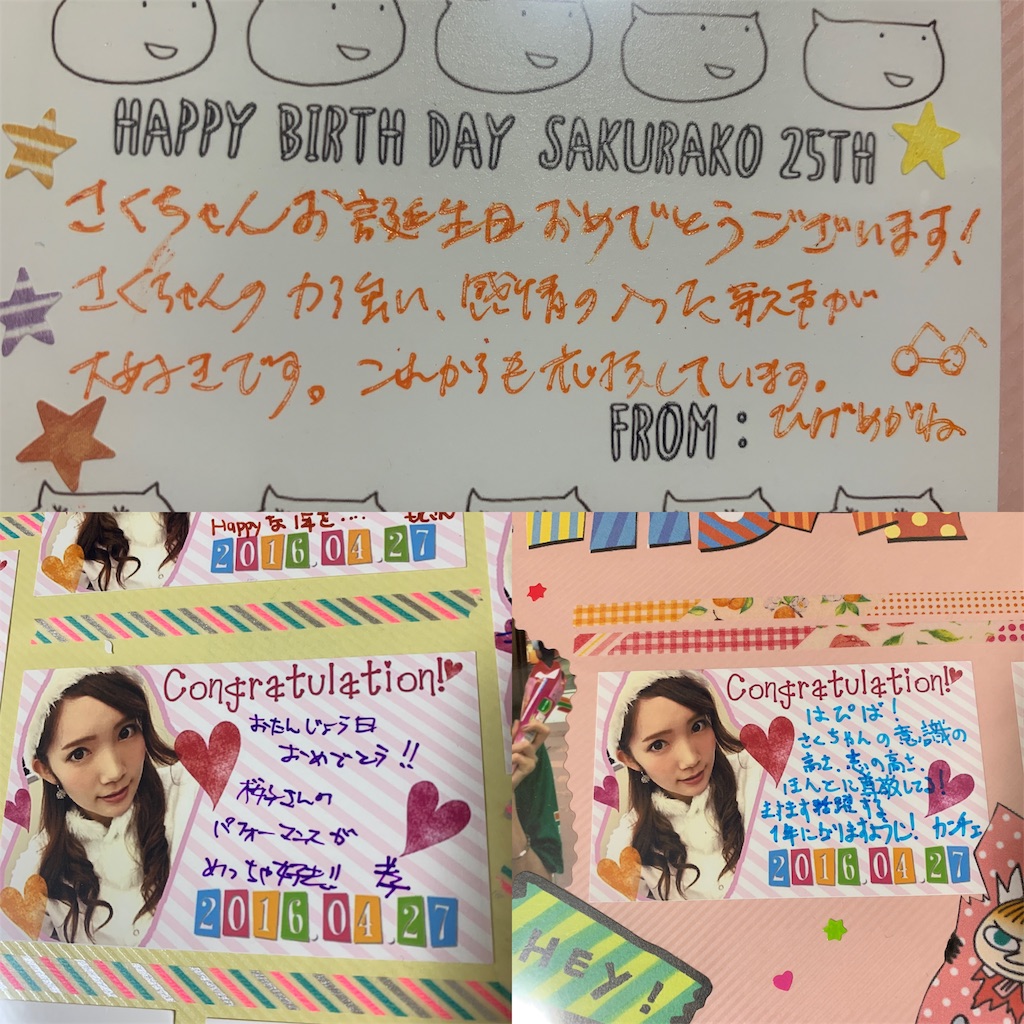 HAPPY BIRTH DAY SAKURAKO 25TH
さくちゃんお誕生日おめでとうございます!
さくちゃんの力強い、感情の入った歌声が
大好きです。これからも応援しています。
FROM : ひげめがね
Happyな1年を....
2016.04.27
Congratulation!
おたんじょう日
おめでとう!!
桜子さんの
パフォーマンスが
めっちゃ好き!! 孝
2016.04.27
Congratulation!
はぴば!
さくちゃんの意識の
高さ、志の高さ、
ほんとに尊敬してる!
ますます活躍する
1年になりますように! カンチェ
2016.04.27
HEY!